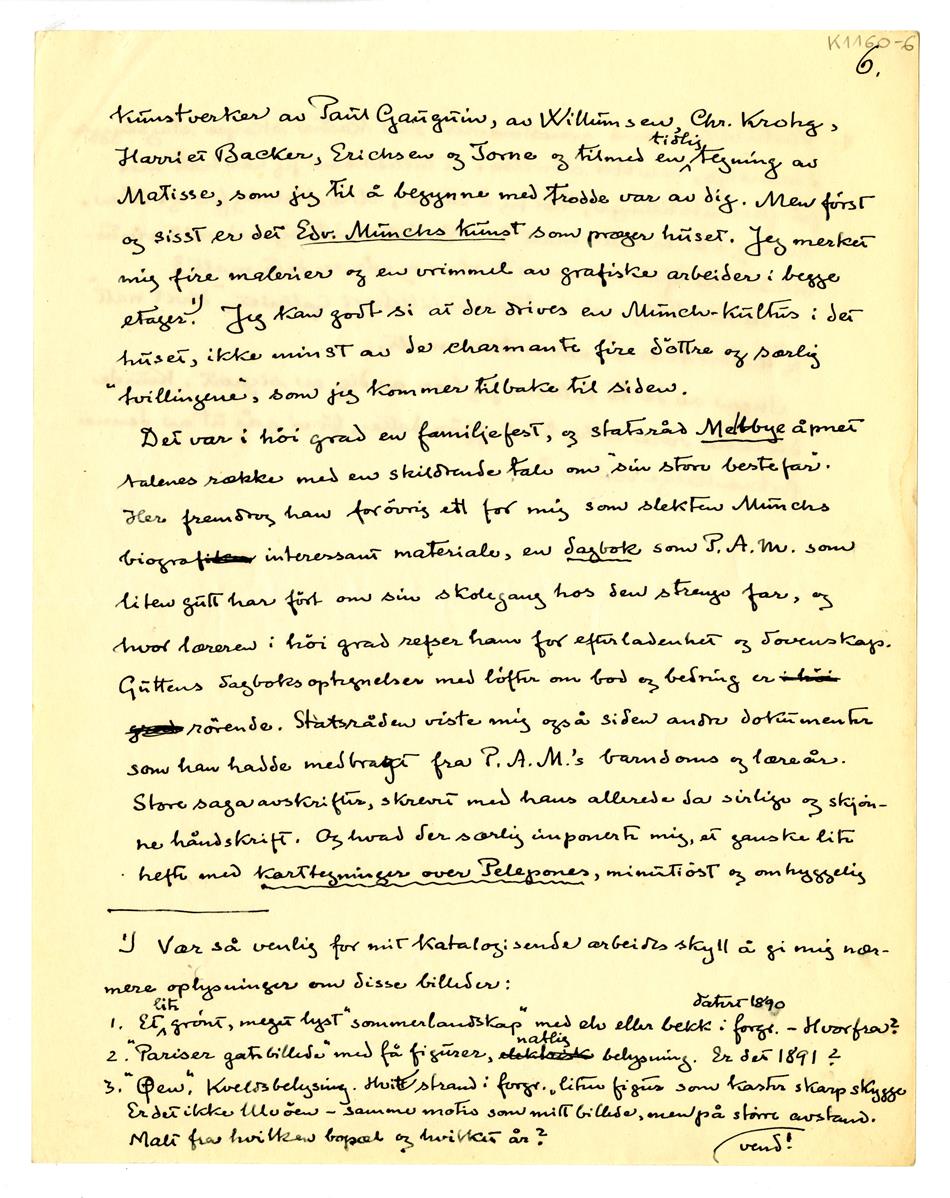 K1160-6
6.
kunstverker av Paul Gauguin, av Willumsen, Chr. Krohg,
Harriet Backer, Erichsen og Torne og tilmed en tidlig tegning av
Matisse, som jeg til å begynne med trodde var av dig. Men först
og sisst er det Edv. Munchs kunst som præger huset. Jeg merket
mig fire malerier og en vrimmel av grafiske arbeider i begge
etager.1) Jeg kan godt si at der drives en Munch-kultus i det
huset, ikke minst av de charmante fire döttre og særlig
"tvillingene", som jeg kommer tilbake til siden.
Det var i höi grad en familjefest, og statsråd Mellbye åpnet
talenes række med en skildrende tale om "sin store bestefar".
Her fremdrog han forövrig ett for mig som slekten Munchs
biograf interessant materiale, en dagbok som P.A.M. som
liten gutt har fört om sin skolegang hos den strenge far, og
hvor læreren i höi grad refser ham for efterladenhet og dovenskap.
Guttens dagboksoptegnelser med löfter om bod og bedring er i höi
grad rörende. Statsråden viste mig også siden andre dokumenter
som han hadde medbragt fra P.A.M.'s barndoms og læreår.
Store sagaavskrifter, skrevet med hans allerede da sirlige og skjön-
ne håndskrift. Og hvad der særlig imponerte mig, et ganske lite
hefte med karttegninger over Pelepones, minutiöst og omhyggelig
1) Vær så venlig for mit katalogisende arbeides skyll å gi mig nær-
mere oplysninger om disse billeder:
1. Et lite grönt, meget lyst "sommerlandskap" med elv eller bekk i forgr. datert 1890 – Hvorfra?
2. "Pariser gatebillede" med få figurer, elektrisk natlig belysning. Er det 1891?
3. "Öen", Kveldsbelysing. Hvit strand i forgr., liten figur som kaster skarp skygge
Er det ikke Ulvöen – samme motiv som mitt billede, men på större avstand.
Malt fra hvilken bopæl og hvilket år?
vend!